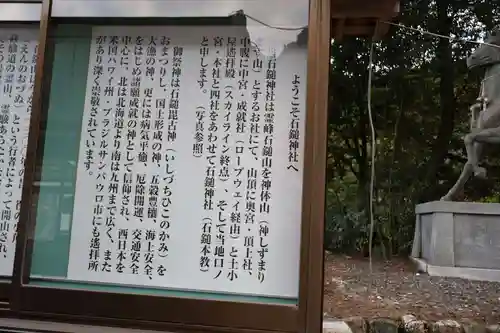 ようこそ石鎚神社へ
石鎚神社は霊峰石鎚山を神体山（神しずまり
ます山）とするお社にて、山頂に奥宮・頂上社、
中腹に中宮・成就社（ロープウェイ経由）と土小
屋遙拝殿（スカイライン終点）、そして当地口ノ
宮・本社と四社をあわせて石鎚神社（石鎚本教）
と申します。（写真参照）
御祭神は石鎚毘古神（いしづちひこのかみ）を
おまつりし、国土形成の神、五穀豊穣、海上安全、
大漁の神、更には病気平癒、厄除開運、交通安全
をはじめ諸願成就の神として信仰され、西日本を
中心に、北は北海道より南は九州まで広く、また
米国ハワイ州・ブラジルサンパウロ市にも遙拝所
があり深く崇敬されています。